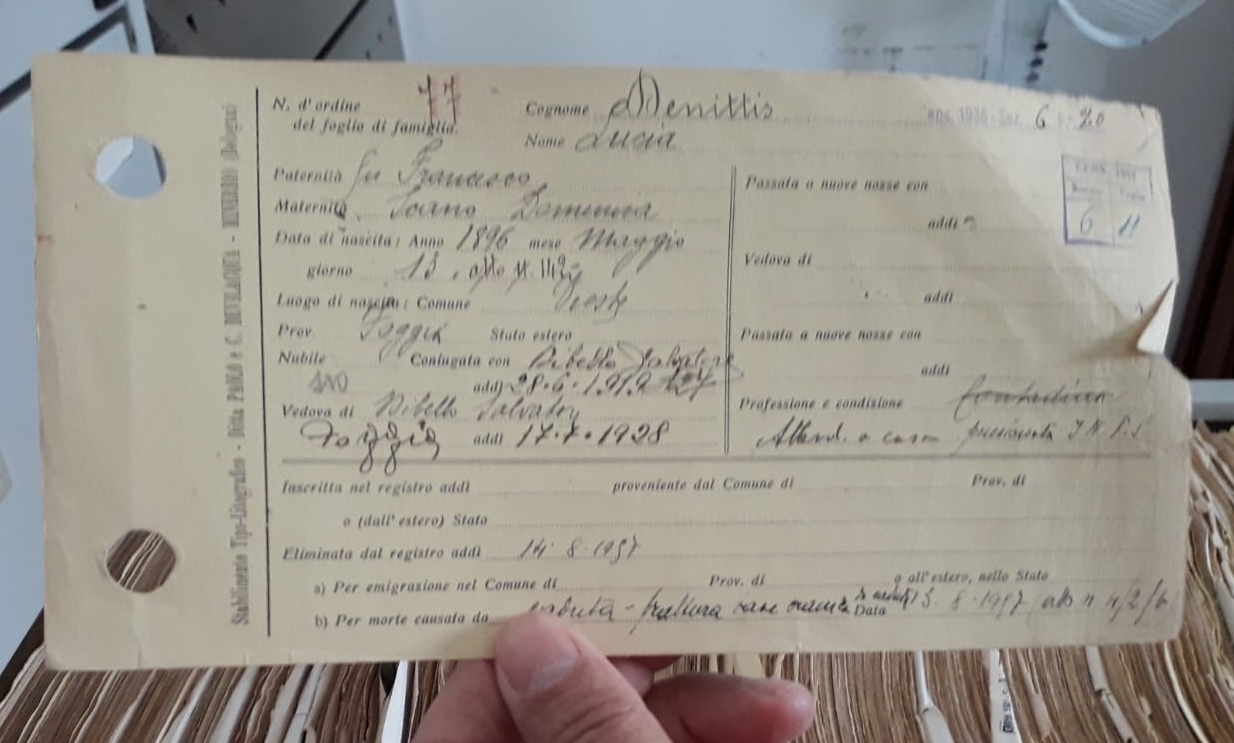 N. d'ordine 77 Cognome Denittis
del foglio di famiglia. Nome Lucia
6 20
Paternità fu Francesco
Maternità Domenica
Data di nascita: Anno 1896 mese Maggio
giorno 13
Luogo di nascita: Comune Vieste
Prov. Foggia Stato estero
Nubile Coniugata con Dibello Salvatore
addì 28.6.1919
Vedova di Dibello Salvatore
Foggia addì 17.7.1928
Passata a nuove nozze con
addì
Vedova di
addì
Passata a nuove nozze con
addì
Professione e condizione Contadina
Attend. a casa pensionata I.N.P.S.
6 11
Inscritta nel registro addì proveniente dal Comune di Prov. di
o (dall'estero) Stato
Eliminata dal registro addì 14.8.1957
a) Per emigrazione nel Comune di Prov. di o all'estero, nello Stato
b) Per morte causata da caduta - frattura base cranica Data 13.8.1957
Stabilimento Tipo-Litografico - Ditta PAOLO e C. BEVILACQUA - MINERBIO (Bologna)